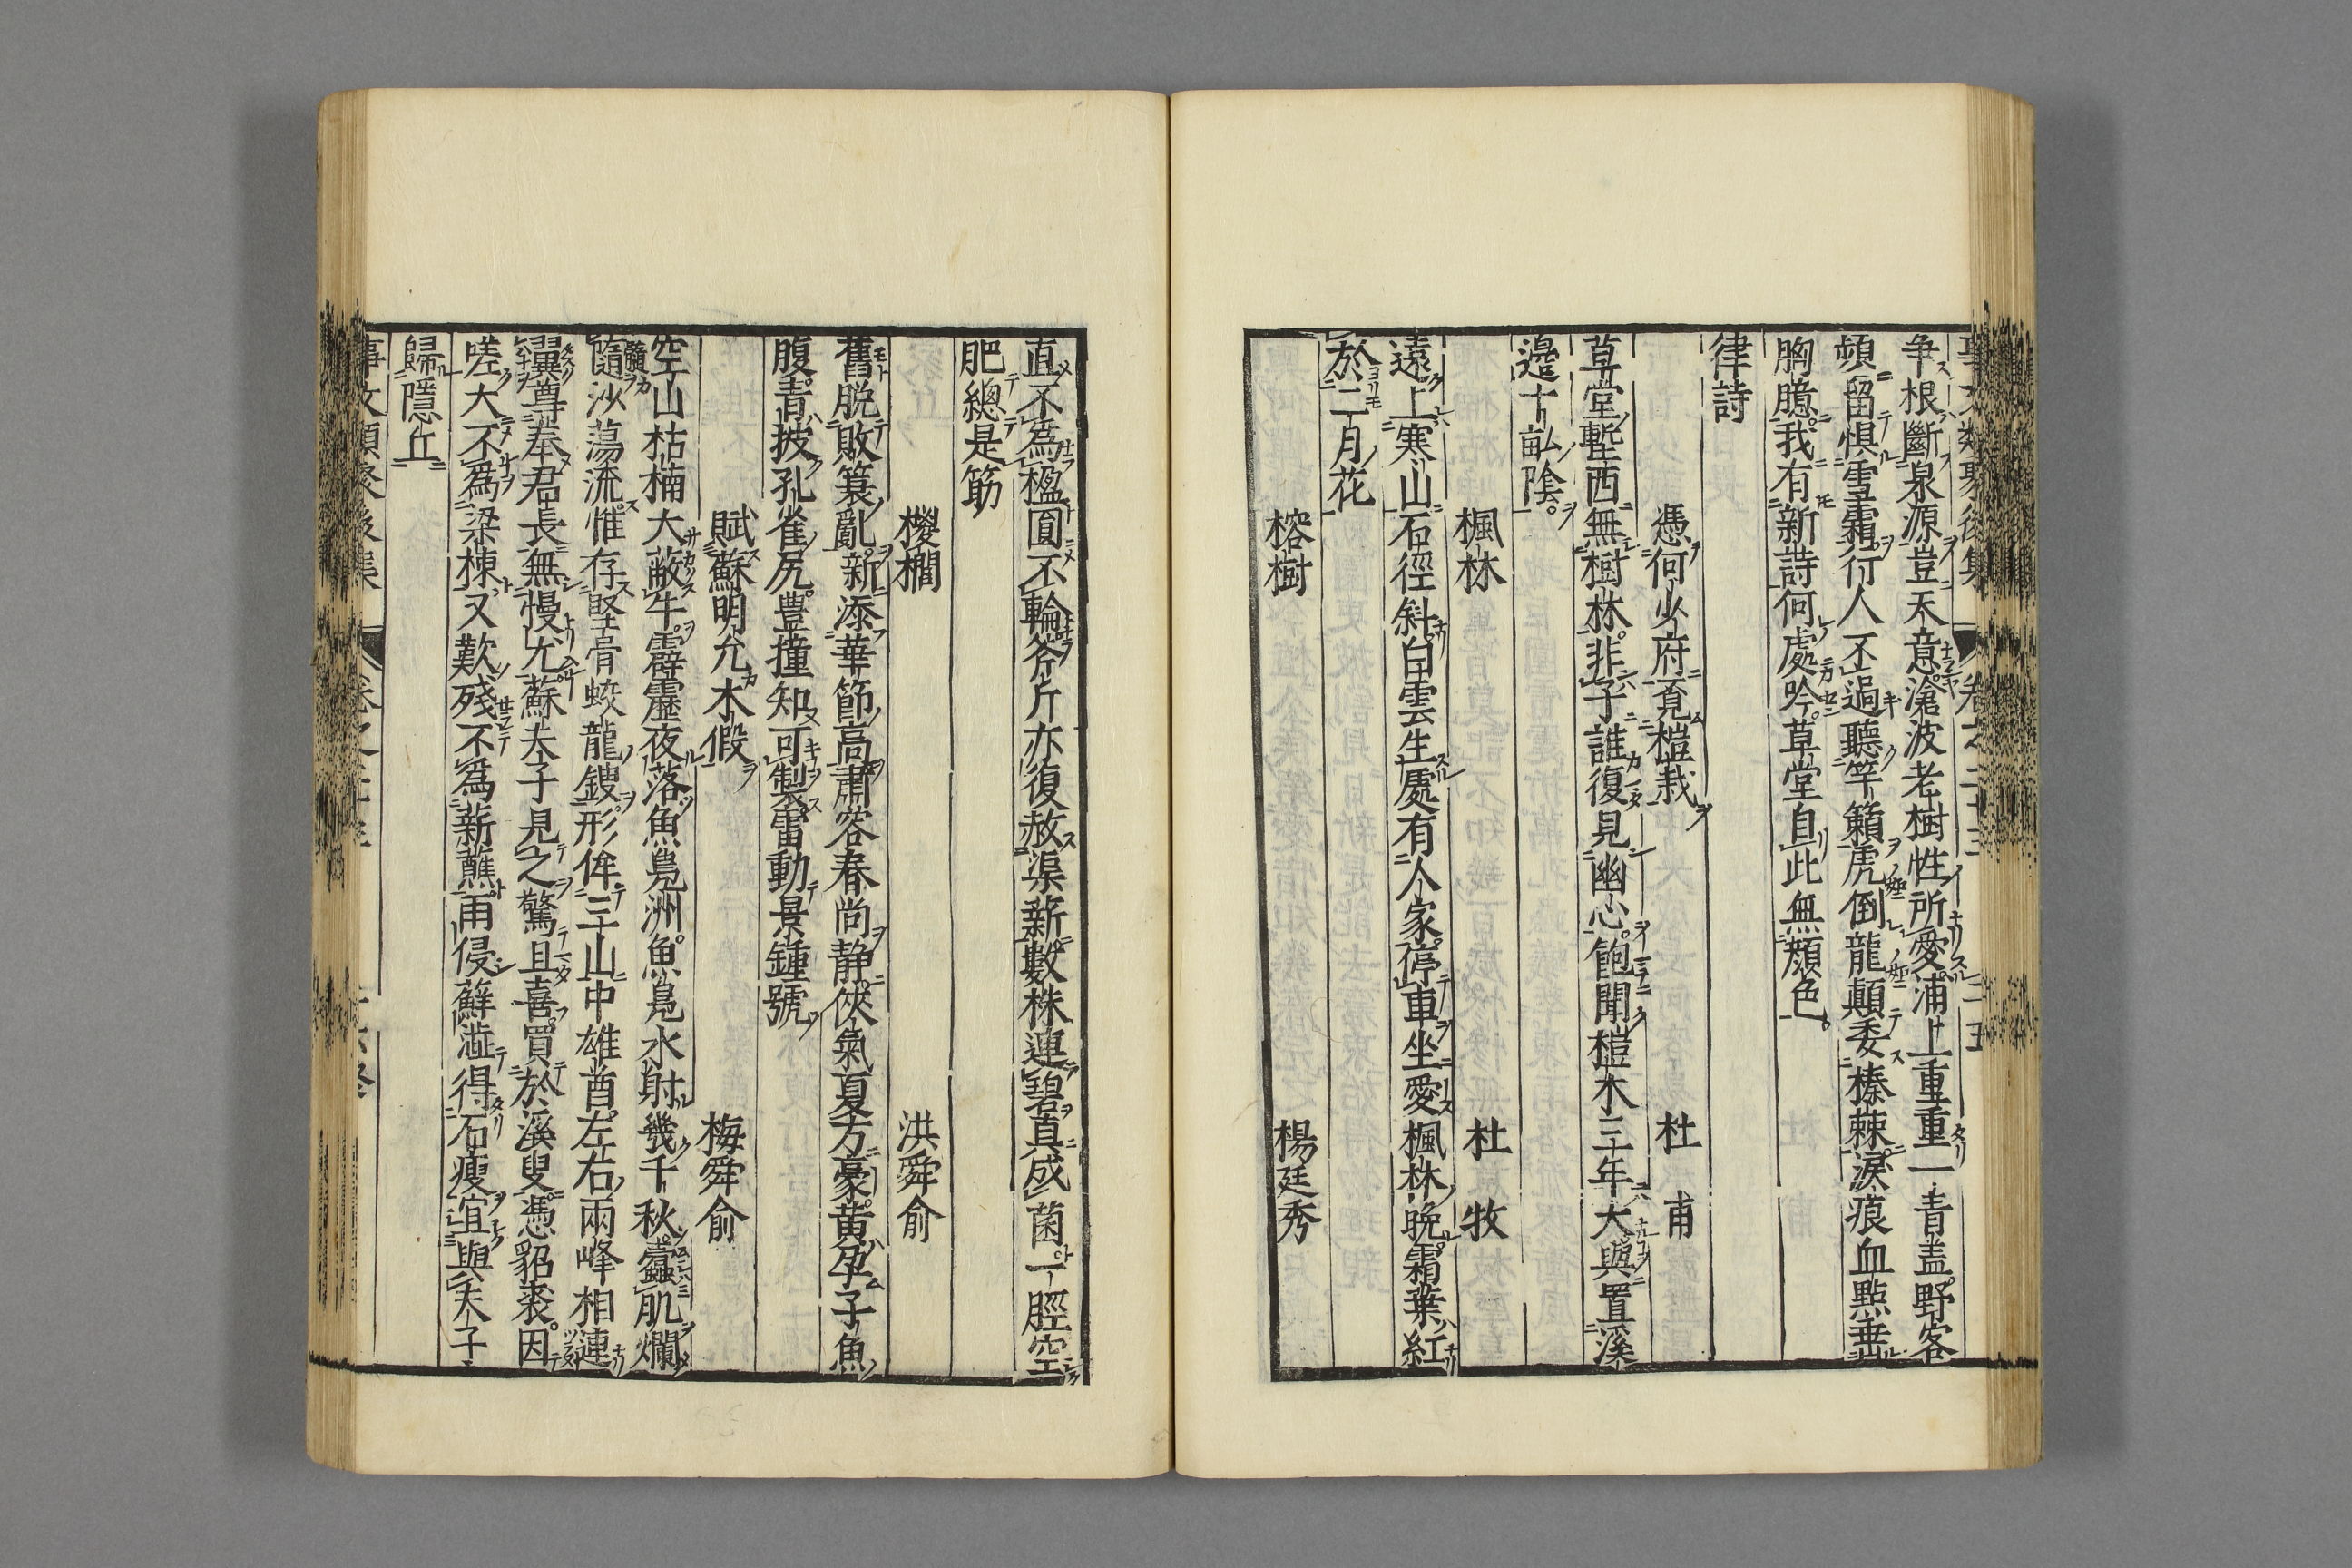 爭根斷泉源豈天意滄波老樹性所愛浦上重重一青盖野客
頻留惧雪霜行人不過聽竿籟虎倒龍顛委榛棘淚痕血點垂
胸臆我有新詩何處吟草堂自此無顔色
律詩
憑何少府覔榿栽 杜甫
草堂塹西無樹林非子誰復見幽心飽聞榿木三年大與置溪
邉十畝陰
楓林 杜牧
遠上寒山石徑斜白雲生處有人家停車坐愛楓林晩霜葉紅
於二月花
榕樹 楊廷秀
直不為楹圎不輪斧斤亦復赦渠薪數株連碧真成菌一脛空
肥總是筋
椶櫚 洪舜俞
舊脱敗簑亂新添華節高肅容春尚静俠氣夏方豪黄孕子魚
腹青披孔雀尻豊撞知可製雷動景鍾號
賦蘇明允木假 梅舜俞
空山枯楠大蔽牛霹靂夜落魚鳬洲魚鳬水射幾千秋蠧肌爛
髓沙蕩流惟存堅骨蛟龍鎪形侔三山中雄酋左右兩峰相連
翼尊奉君長無慢尤蘇夫子見之驚且喜買於溪叟憑貂裘因
嗟大不為梁棟又歎殘不為薪蕉雨侵蘚澁得石瘦宜與夫子
歸隱丘